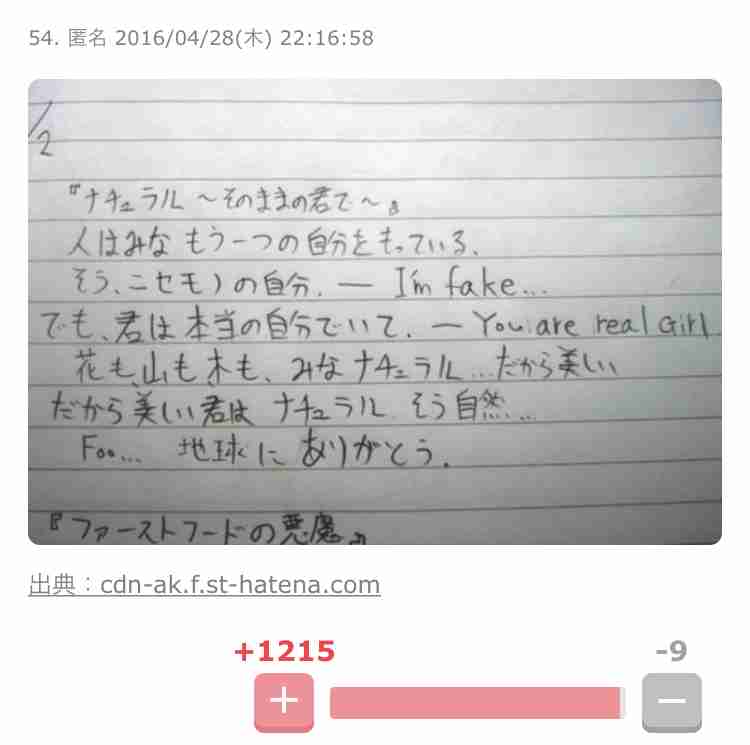 54. 匿名 2016/04/28(木) 22:16:58
1/2
『ナチュラル 〜そのままの君で〜』
人はみな もう一つの自分をもっている、
そう、ニセモノの自分. — I'm fake...
でも、君は本当の自分でいて. — You are real Girl
花も、山も木も、みなナチュラル...だから美しい
だから美しい君は ナチュラル そう自然...
Foo... 地球にありがとう.
『ファーストフードの悪魔』
出典：cdn-ak.f.st-hatena.com
+1215
-9
+
−